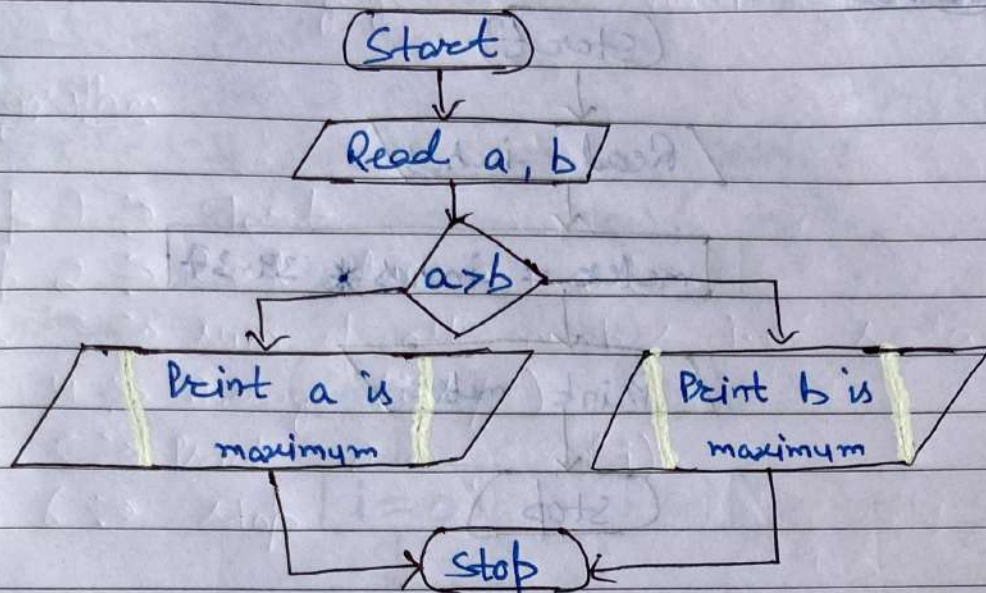 Start
Read a, b
a>b
Print a is
maximum
Print b is
maximum
Stop